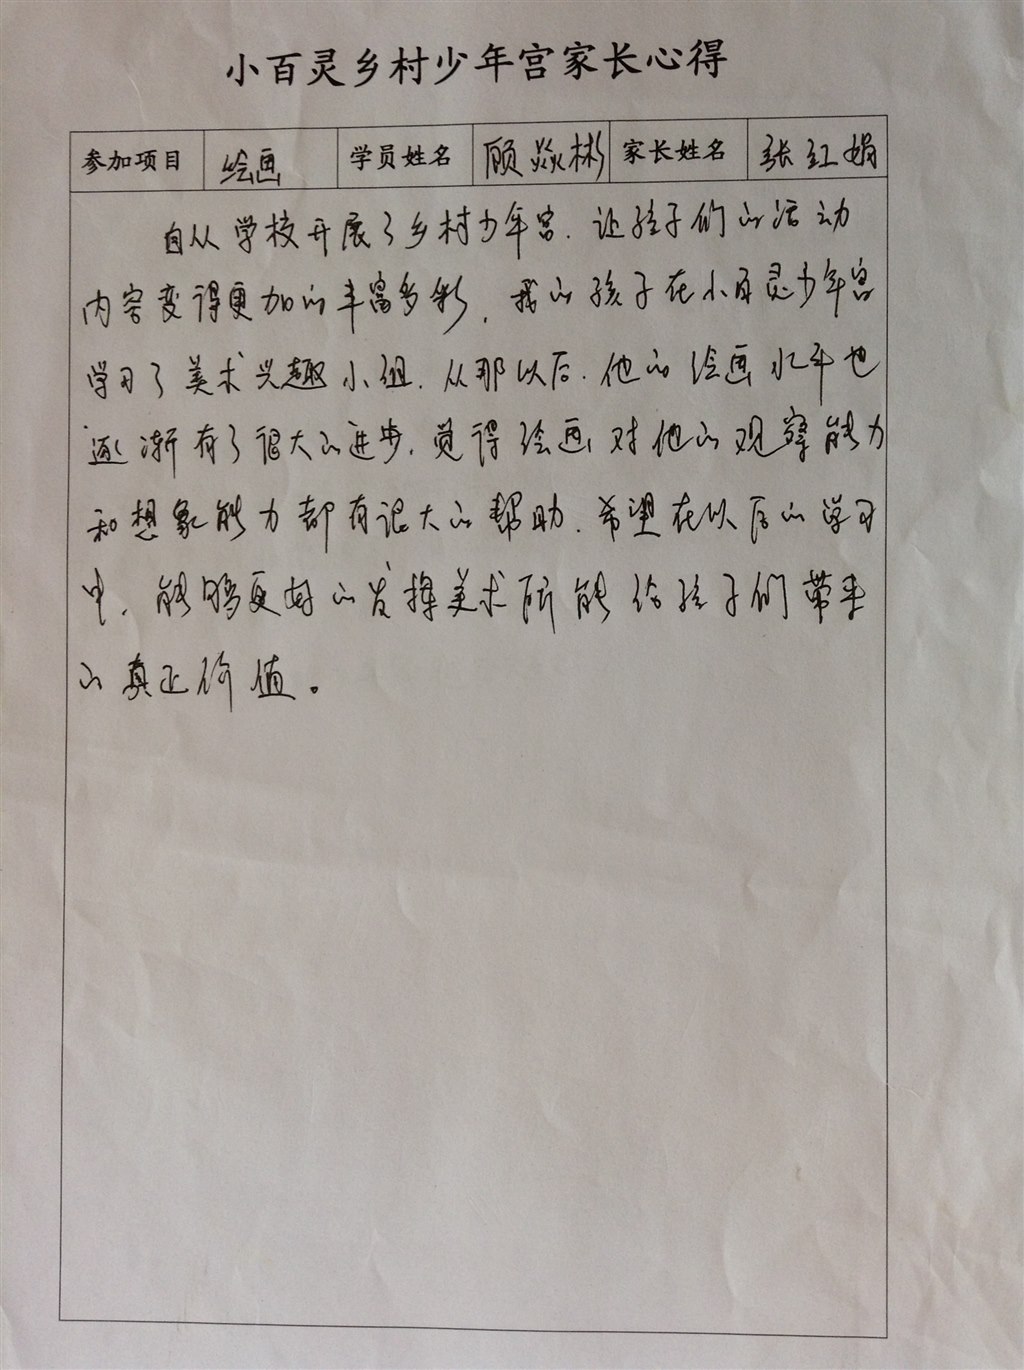 小百灵乡村少年宫家长心得
参加项目 绘画 学员姓名 顾焱彬 家长姓名 张红娟
自从学校开展了乡村少年宫,让孩子们的活动
内容变得更加的丰富多彩,我的孩子在小百灵少年宫
学习了美术兴趣小组,从那以后,他的绘画水平也
逐渐有了很大的进步,觉得绘画对他的观察能力
和想象能力都有很大的帮助,希望在以后的学习
中,能够更好的发挥美术所能给孩子们带来
的真正价值。